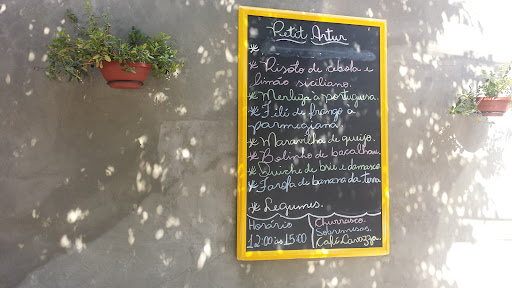 Petit Artur
*
* Risoto de cebola e
limão siciliano.
* Merluza a portuguesa.
* Filé de frango a
parmegiana
* Maravilha de queijo.
* Bolinho de bacalhau.
* Quiche de brie e damasco.
* Farofa de banana da terra
* Legumes.
Horário
12:00 às 15:00
Churrasco.
Sobremesas.
Café Lavazza.